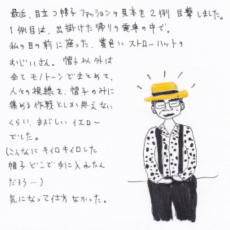 最近、目立つ帽子ファッションの見本を2例目撃しました。
1例目は、出掛けた帰りの電車の中で。
私の目の前に座った、黄色いストローハットの
おじいさん。帽子以外は
全てモノトーンでまとめて、
人々の視線を、帽子のみに
集める作戦としか思えない
くらい、まぶしいイエロー
でした。
(こんなにキイロキイロした
帽子どこで手に入れたん
だろう…)
気になって仕方なかった。